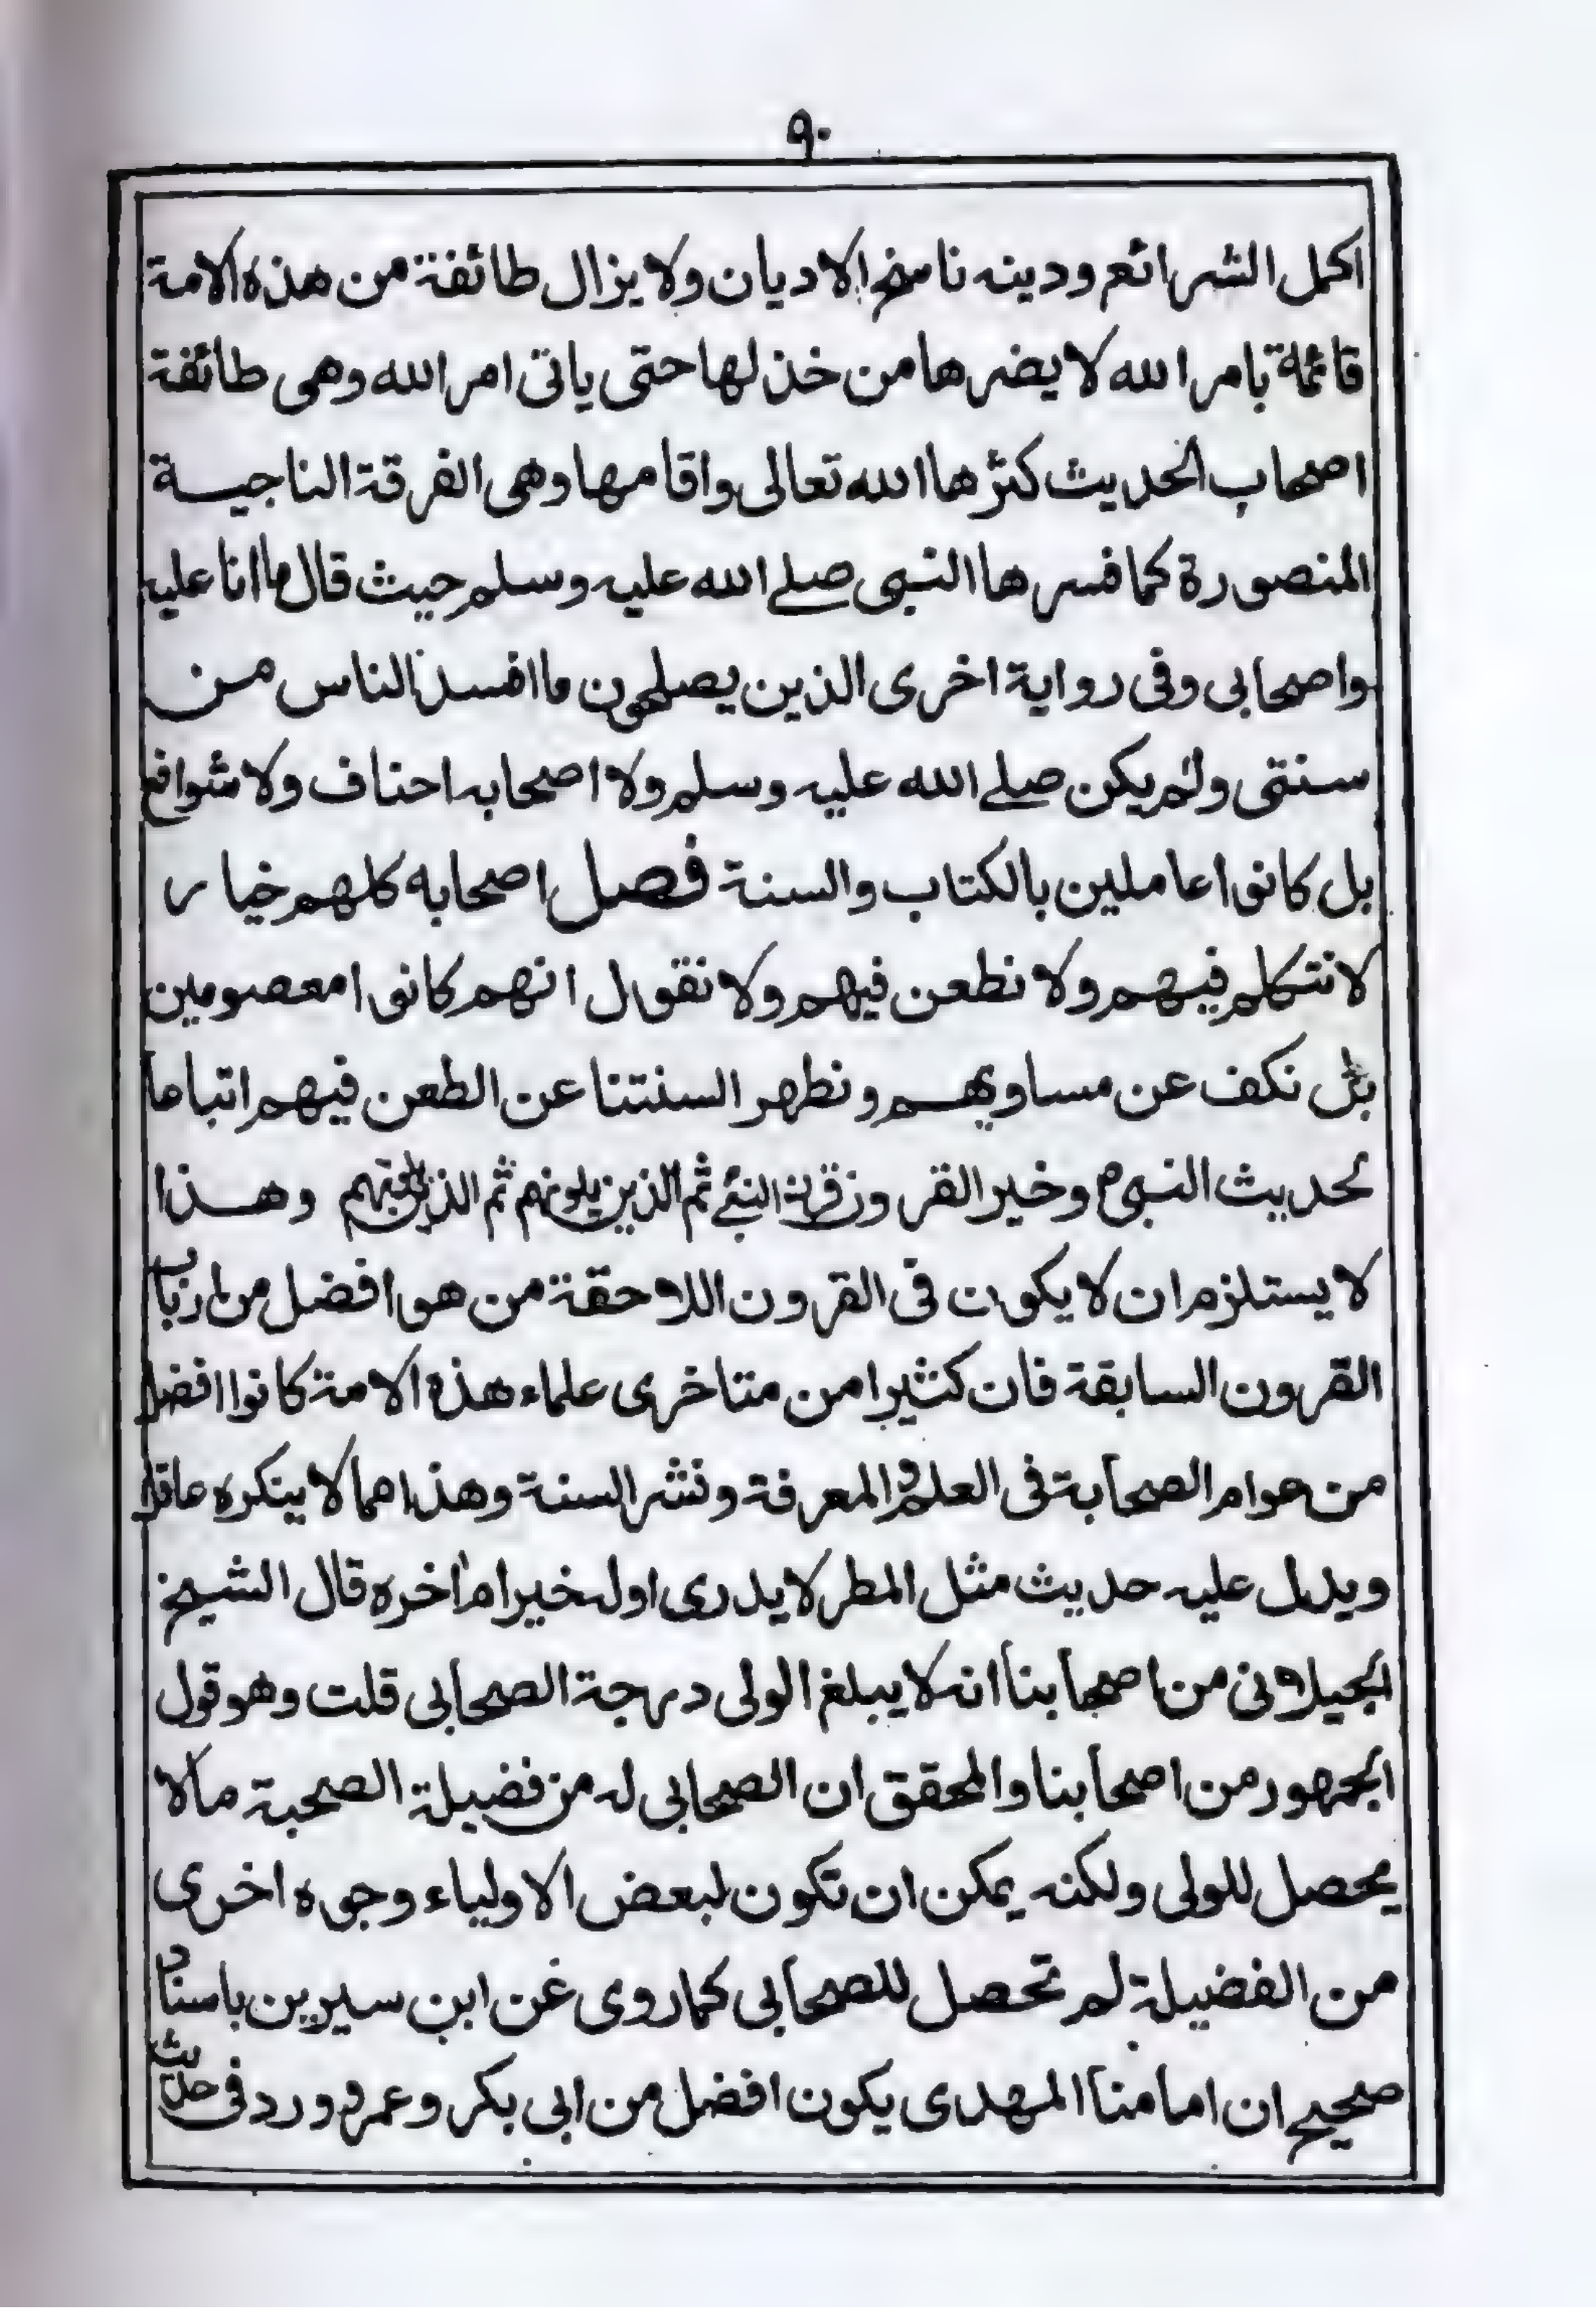 ٩٠
اكمل الشرائع ودينه ناسخ الاديان ولا يزال طائفة من هذه الامة
قائمة بامر الله لا يضرها من خذلها حتى ياتى امر الله وهى طائفة
اصحاب الحديث كثرها الله تعالى واقامها وهى الفرقة الناجية
المنصورة كما فسرها النبى صلے الله عليه وسلم حيث قال ما انا عليه
واصحابى وفى رواية اخرى الذين يصلحون ما افسد الناس من
سنتى ولم يكن صلے الله عليه وسلم ولا اصحابه احناف ولا شوافع
بل كانوا عاملين بالكتاب والسنة فصل اصحابه كلهم خيار
لا نتكلم فيهم ولا نطعن فيهم ولا نقول انهم كانوا معصومين
بل نكف عن مساويهم ونطهر السنتنا عن الطعن فيهم اتباعا
لحديث النبىؐ وخير القرون قرن النبے ثم الذين يلونهم ثم الذين يلونهم وهذا
لا يستلزم ان لا يكون فى القرون اللاحقة من هو افضل من ارباب
القرون السابقة فان كثيرا من متاخرى علماء هذه الامة كانوا افضل
من عوام الصحابة فى العلم والمعرفة ونشر السنة وهذا مما لا ينكره عاقل
ويدل عليه حديث مثل المطر لا يدرى اوله خير ام اخره قال الشيخ
الجيلانى من اصحابنا انه لا يبلغ الولى درجة الصحابى قلت وهو قول
الجمهور من اصحابنا والمحقق ان الصحابى له من فضيلة الصحبة ما لا
يحصل للولى ولكنه يمكن ان تكون لبعض الاولياء وجوه اخرى
من الفضيلة لم تحصل للصحابى كما روى عن ابن سيرين باسناد
صحيح ان امامنا المهدى يكون افضل من ابى بكر وعمر وورد فى حديث